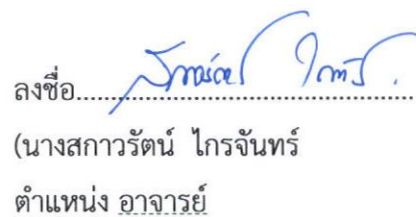 ลงชื่อ
(นางสกาวรัตน์ ไกรจันทร์
ตำแหน่ง อาจารย์